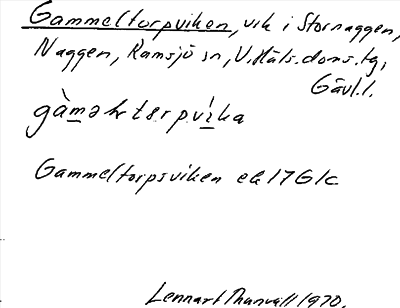 Gammeltorpviken, vik i Stornaggen,
Naggen, Ramsjö sn, V. Häls. doms. tg,
Gävl. l.
gàməɫtɛrpvı̀ka
Gammeltorpsviken ek 17G1c
Lennart Thunvall 1970.